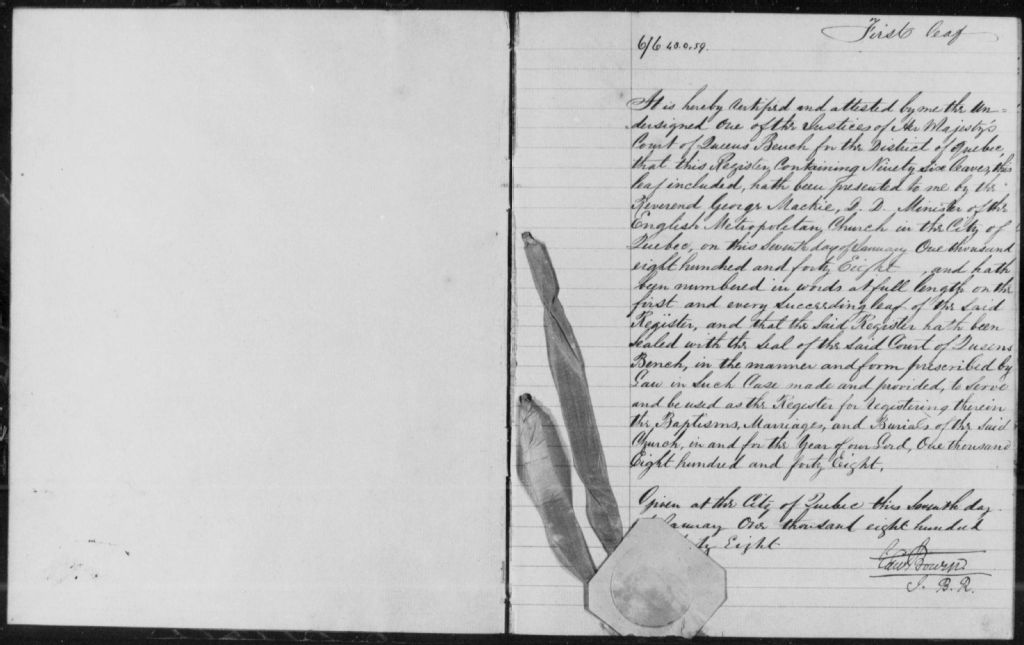 First leaf
6/6
It is hereby Certified and attested by me the Un=
dersigned One of the Justices of Her Majesty's
Court of Queens Bench for the District of Quebec,
that this Register, Containing Ninety six leaves, this
leaf included, hath been presented to me by the
Reverend George Mackie, D. D. Minister of the
English Metropolitan, Church in the City of
Quebec, on this Seventh day of January One thousand
eight hundred and forty Eight , and hath
been numbered in words at full length on the
first and every succeeding leaf of the said
Register, and that the said Register hath been
sealed with the seal of the said Court of Queens
Bench, in the manner and form prescribed by
Law in such Case made and provided, to serve
and be used as the Register for registering therein
the Baptisms, Marriages, and Burials of the said
Church, in and for the Year of our Lord, One thousand
Eight hundred and forty Eight.
Given at the City of Quebec this Seventh day
January One thousand eight hundred
Eight
Edw Bowen
J. B. R.